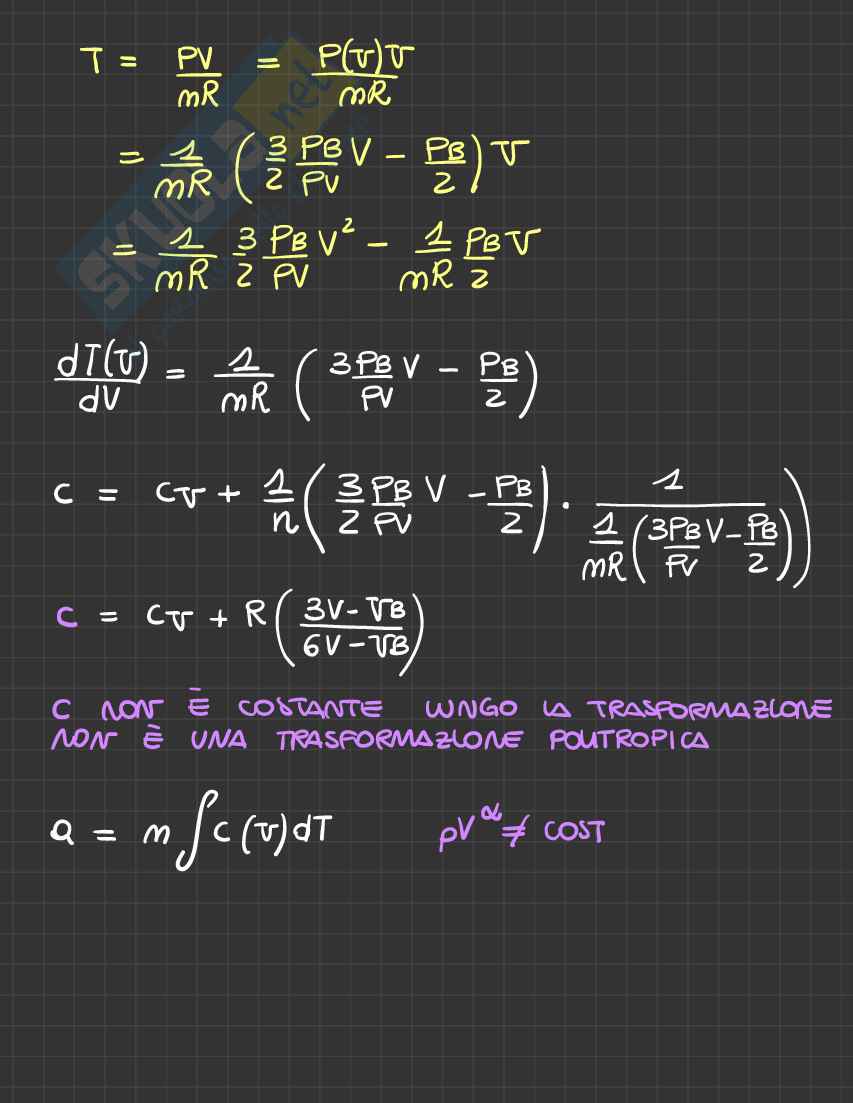 T = PV/mR = P(V)V/mR
= 1/mR (3/2 PB/PV V - PB/2) V
= 1/mR 3/2 PB/PV V² - 1/mR PB/2 V
dT(V)/dV = 1/mR (3PB/PV V - PB/2)
C = CV + 1/n (3/2 PB/PV V - PB/2) · 1/(1/mR (3PB/PV V - PB/2)))
C = CV + R (3V - VB/6V - VB)
C NON È COSTANTE LUNGO LA TRASFORMAZIONE
NON È UNA TRASFORMAZIONE POLITROPICA
Q = m∫C(V)dT pV^α ≠ COST
SKUOLA.net